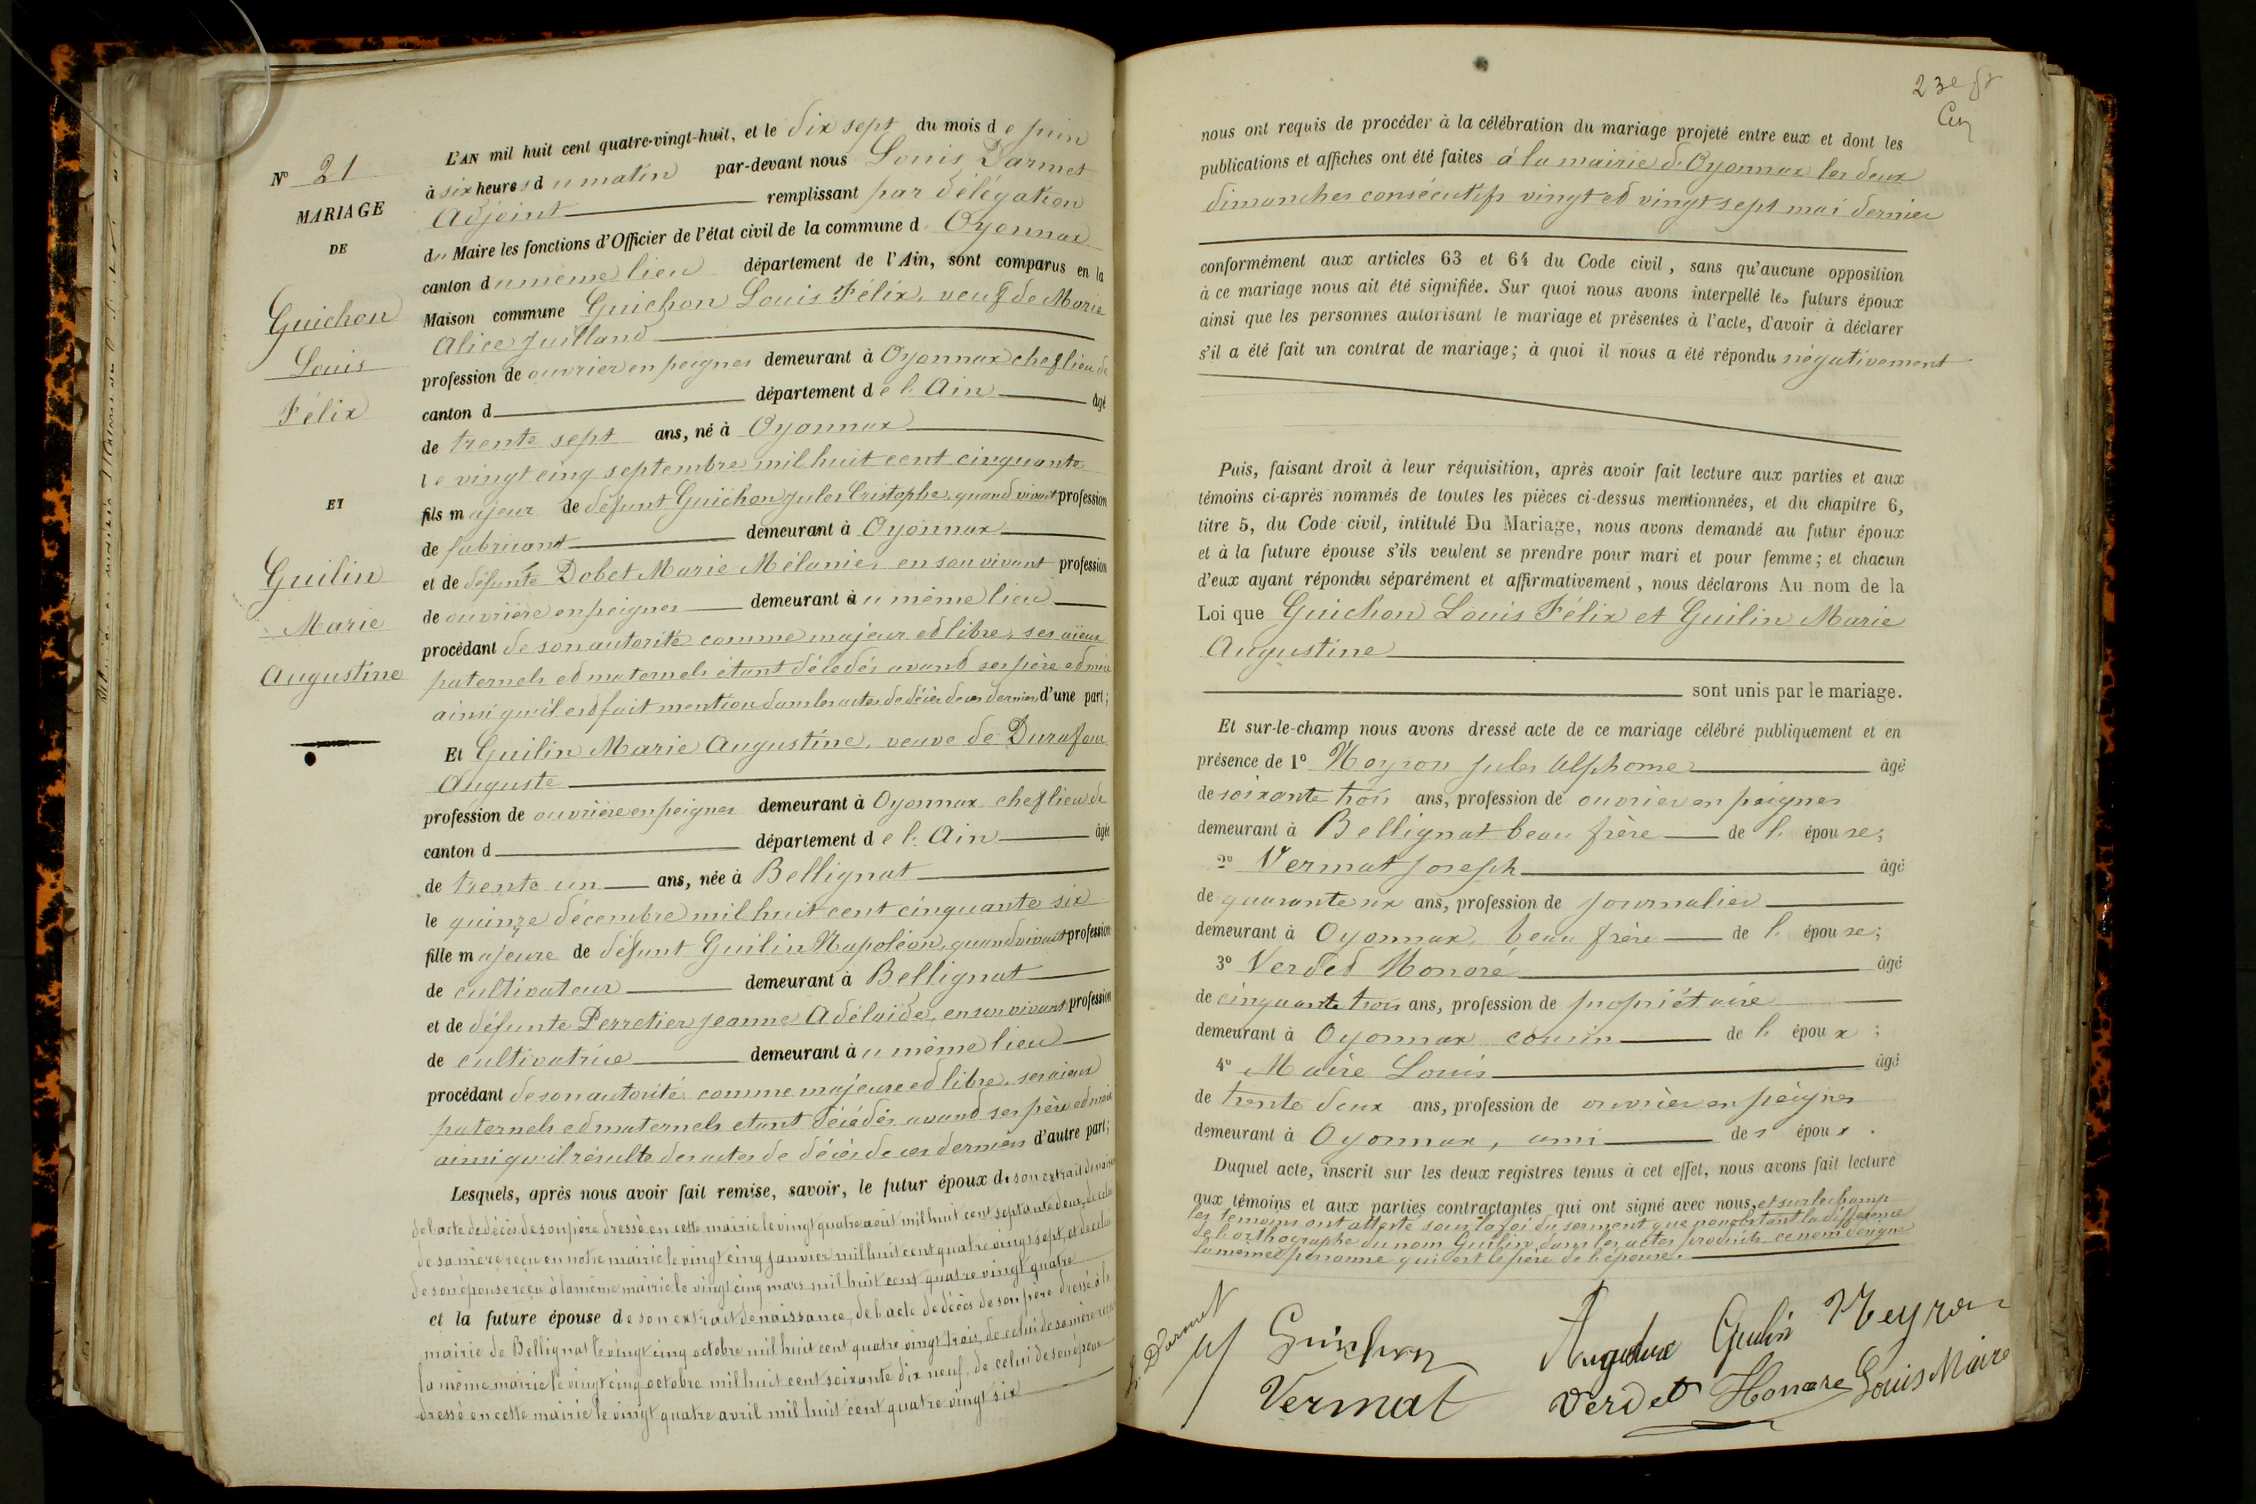 N° 21
MARIAGE
DE
Guichon
Louis
Félix
ET
Guilin
Marie
Augustine
L'AN mil huit cent quatre-vingt-huit, et le dix sept du mois de juin
à six heures du matin par-devant nous Louis Darmet
Adjoint remplissant par délégation
du Maire les fonctions d'Officier de l'état civil de la commune d. Oyonnax
canton du même lieu département de l'Ain, sont comparus en la
Maison commune Guichon Louis Félix, veuf de Marie
Alice Juilland
profession de ouvrier en peignes demeurant à Oyonnax chef lieu de
canton d département de l'Ain âgé
de trente sept ans, né à Oyonnax
le vingt cinq septembre mil huit cent cinquante
fils majeur de défunt Guichon Jules Cristophe, quand vivait profession
de fabricant demeurant à Oyonnax
et de défunte Dobet Marie Mélanie, en son vivant profession
de ouvrière en peignes demeurant au même lieu
procédant de son autorité comme majeur et libre, ses aïeux
paternels et maternels étant décédés avant ses père et mère
ainsi qu'il est fait mention dans les actes de décès de ces derniers d'une part;
Et Guilin Marie Augustine, veuve de Durafour
Auguste
profession de ouvrière en peignes demeurant à Oyonnax chef lieu de
canton d département de l'Ain âgée
de trente un ans, née à Bellignat
le quinze décembre mil huit cent cinquante six
fille majeure de défunt Guilin Napoléon, quand vivait profession
de cultivateur demeurant à Bellignat
et de défunte Perretier Jeanne Adélaïde, en son vivant profession
de cultivatrice demeurant au même lieu
procédant de son autorité comme majeure et libre, ses aïeux
paternels et maternels étant décédés avant ses père et mère
ainsi qu'il résulte des actes de décès de ces derniers d'autre part;
Lesquels, après nous avoir fait remise, savoir, le futur époux de son extrait de naissance
de l'acte de décès de son père dressé en cette mairie le vingt quatre août mil huit cent septante deux, de celui
de sa mère reçu en notre mairie le vingt cinq janvier mil huit cent quatre vingt sept, et de celui
de son épouse reçu à la même mairie le vingt cinq mars mil huit cent quatre vingt quatre
et la future épouse de son extrait de naissance, de l'acte de décès de son père dressé à la
mairie de Bellignat le vingt cinq octobre mil huit cent quatre vingt trois, de celui de sa mère
la même mairie le vingt cinq octobre mil huit cent soixante dix neuf, de celui de son époux
dressé en cette mairie le vingt quatre avril mil huit cent quatre vingt six
23e
nous ont requis de procéder à la célébration du mariage projeté entre eux et dont les
publications et affiches ont été faites à la mairie d'Oyonnax les deux
dimanches consécutifs vingt et vingt sept mai dernier
conformément aux articles 63 et 64 du Code civil, sans qu'aucune opposition
à ce mariage nous ait été signifiée. Sur quoi nous avons interpellé les futurs époux
ainsi que les personnes autorisant le mariage et présentes à l'acte, d'avoir à déclarer
s'il a été fait un contrat de mariage; à quoi il nous a été répondu négativement
Puis, faisant droit à leur réquisition, après avoir fait lecture aux parties et aux
témoins ci-après nommés de toutes les pièces ci-dessus mentionnées, et du chapitre 6,
titre 5, du Code civil, intitulé Du Mariage, nous avons demandé au futur époux
et à la future épouse s'ils veulent se prendre pour mari et pour femme; et chacun
d'eux ayant répondu séparément et affirmativement, nous déclarons Au nom de la
Loi que Guichon Louis Félix et Guilin Marie
Augustine
sont unis par le mariage.
Et sur-le-champ nous avons dressé acte de ce mariage célébré publiquement et en
présence de 1° Meyron Jules Alphonse âgé
de soixante trois ans, profession de ouvrier en peignes
demeurant à Bellignat beau frère de l' épouse;
2° Vermat Joseph âgé
de ans, profession de journalier
demeurant à Oyonnax, beau frère de l' épouse;
3° Verdet Honoré âgé
de cinquante trois ans, profession de propriétaire
demeurant à Oyonnax cousin de l' époux;
4° Maire Louis âgé
de trente deux ans, profession de ouvrier en peignes
demeurant à Oyonnax, ami des époux.
Duquel acte, inscrit sur les deux registres tenus à cet effet, nous avons fait lecture
aux témoins et aux parties contractantes qui ont signé avec nous, et sur le champ
les témoins ont attesté sous la foi du serment que nonobstant la différence
de l'orthographe du nom Guilin dans les actes produits ce nom désigne
la même personne qui est le père de l'épouse.
L. Darmet
Guichon
Augustine Guilin
Meyron
Vermat
Verdet Honoré
Louis Maire